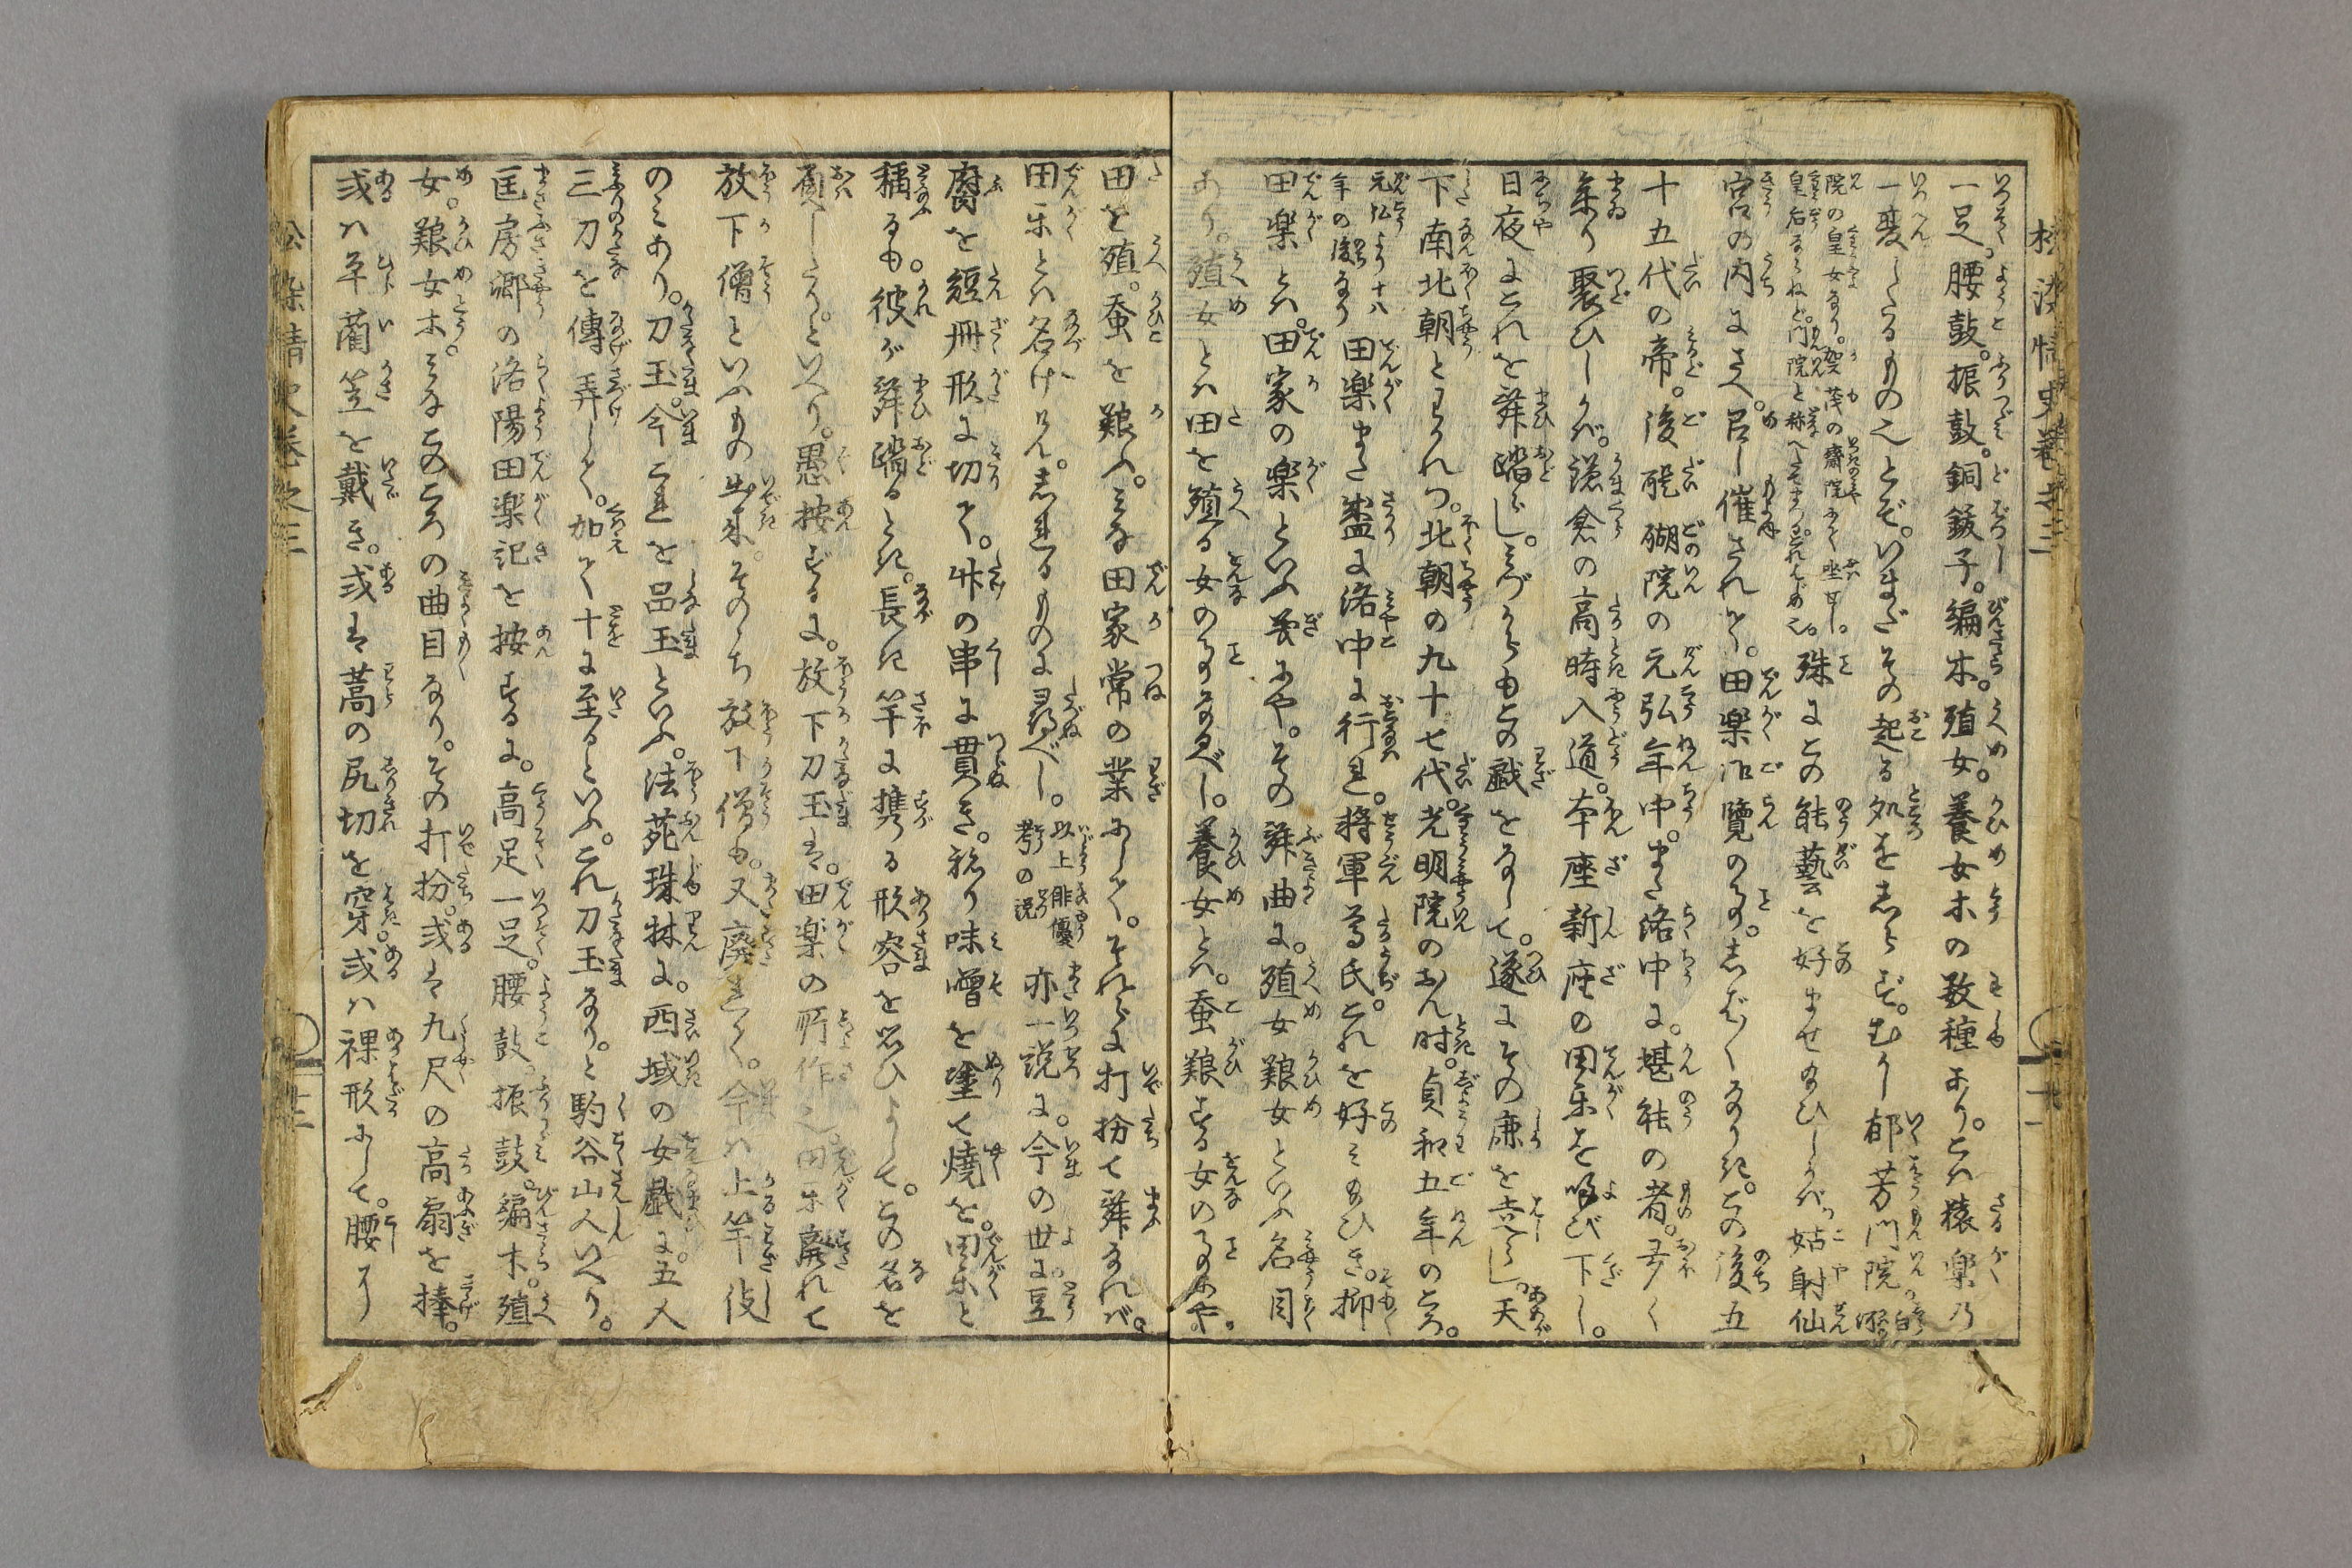 松染情史巻之三
一足。腰鼓。振鼓。銅鈸子。編木。殖女。養女木の数種あり。こは猿楽乃
一変したるもの也とぞ。いまだその起る処をしらず。むかし郁芳門院。白河
院の皇女なり。賀茂の齋院にて坐せし。皇后ならねど。門院と称へたてまつる。これをはじめ也。殊にこの能藝を好ませ給ひしかば。姑射仙
宮の内にさへ。召し催されて。田楽御覽の事。しば〱なりき。この後五
十五代の帝。後醍醐院の元弘年中。また洛中に。堪能の者。多く
集り聚ひしかば。鎌倉の高時入道。本座新座の田楽を喚び下し。
日夜にこれを舞踏らし。みづからもこの戯をなして。遂にその廉を喪し。天
下南北朝とわかれつ。北朝の九十七代。光明院のおん時。貞和五年のころ。
元弘より十八年の後なり 田楽また盛に洛中に行れ。将軍尊氏これを好み給ひき。抑
田楽とは。田家の楽といふ義にや。その舞曲に。殖女飼女といふ名目
あり。殖女とは田を殖る女の事なるべし。養女とは。蚕飼する女の事にや。
田を殖。蚕を飼ふ。みな田家常の業にして。それらに打扮て舞なれば。
田楽とは名けけん。しれるものに尋ぬべし。以上俳優考の説 亦一説に。今の世に豆
腐を短冊形に切て。竹の串に貫き。祕り味噌を塗て燒を。田楽と
稱るも。彼が舞踏るとき。長き竿に携る形容を思ひよして。この名を
負したり。といへり。愚按ずるに。放下刀玉は。田楽の所作也。田楽廃れて
放下僧といふもの出來。そのゝち放下僧も。又廃れて。今は上竿伎
のみあり。刀玉。今これを品玉といふ。法苑珠林に。西域の女戯に。五人
三刀を傳弄して。加て十に至るといふ。これ刀玉なり。と駒谷山人いへり。
匡房卿の洛陽田楽記を按ずるに。高足一足。腰鼓。振鼓。編木。殖
女。飼女木。みなこのころの曲目なり。その打扮。或は九尺の高扇を捧。
或は平藺笠を戴き。或は藁の尻切を穿。或は裸形にして。腰に
松染情史巻之三